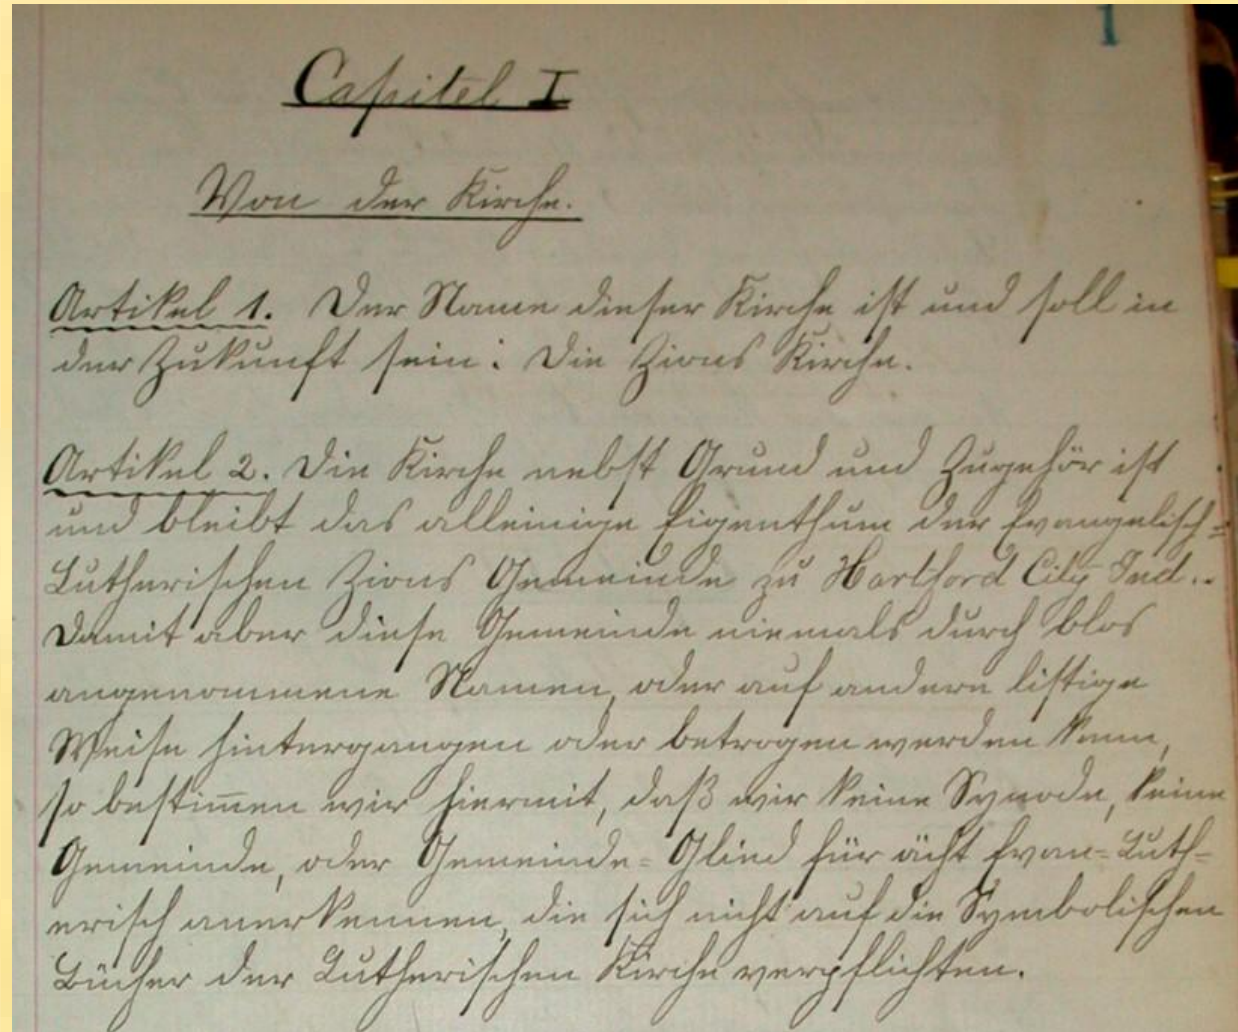 1
Capitel I
Von der Kirche.
Artikel 1. Der Name dieser Kirche ist und soll in
der Zukunft sein: Die Zions Kirche.
Artikel 2. Die Kirche nebst Grund und Zugehör ist
und bleibt das alleinige Eigenthum der Evangelisch=
Lutherischen Zions Gemeinde zu Hartford City Ind..
Damit aber diese Gemeinde niemals durch blos
angenommene Namen, oder auf andern listige
Weise hintergangen oder betrogen werden kann,
so bestim̅en wir hiermit, daß wir keine Synode, keine
Gemeinde, oder Gemeinde=Glied für ächt Evan=Luth=
erisch anerkennen, die sich nicht auf die Symbolischen
Bücher der Lutherischen Kirche verpflichten.